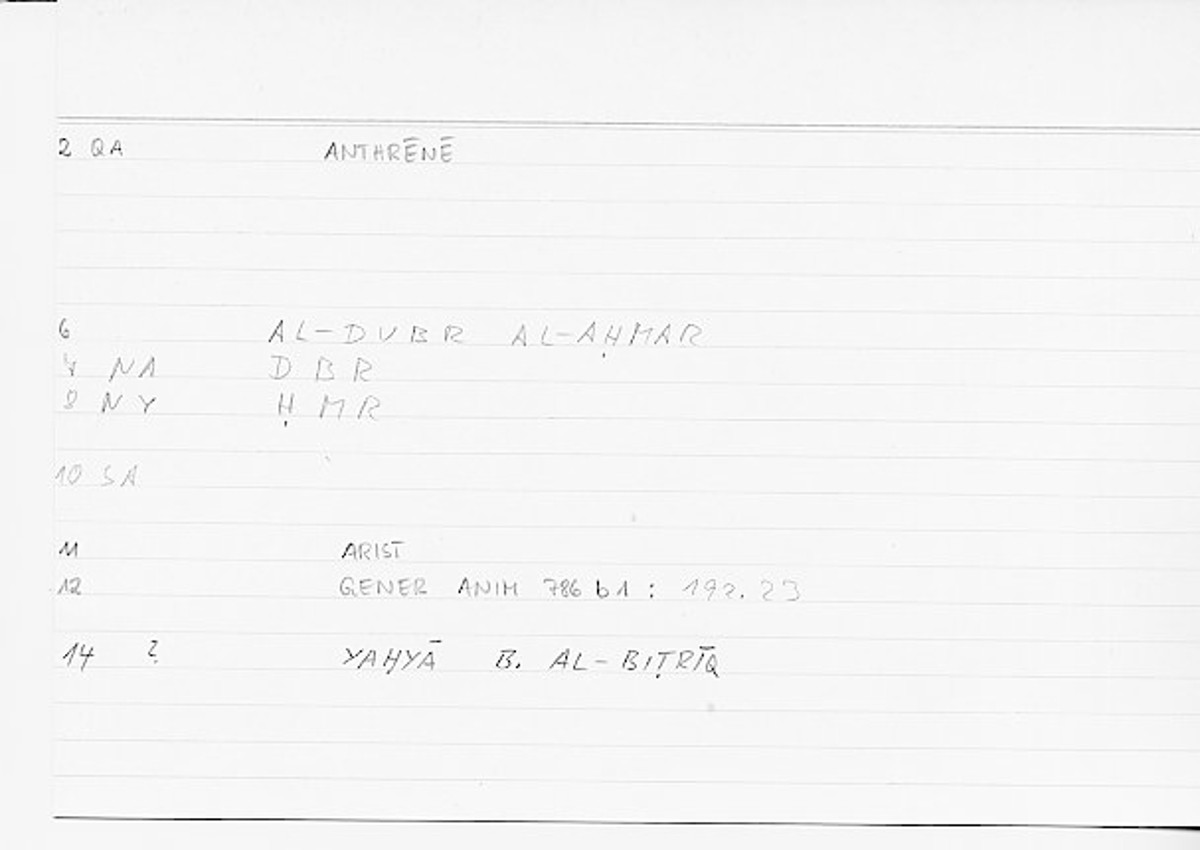 2 QA ANTHRĒNĒ
6 AL-DUBR AL-AḤMAR
7 NA D B R
8 NY Ḥ M R
10 SA
11 ARIST
12 GENER ANIM 786 b1 : 192.23
14 ? YAḤYĀ B. AL-BIṬRĪQ